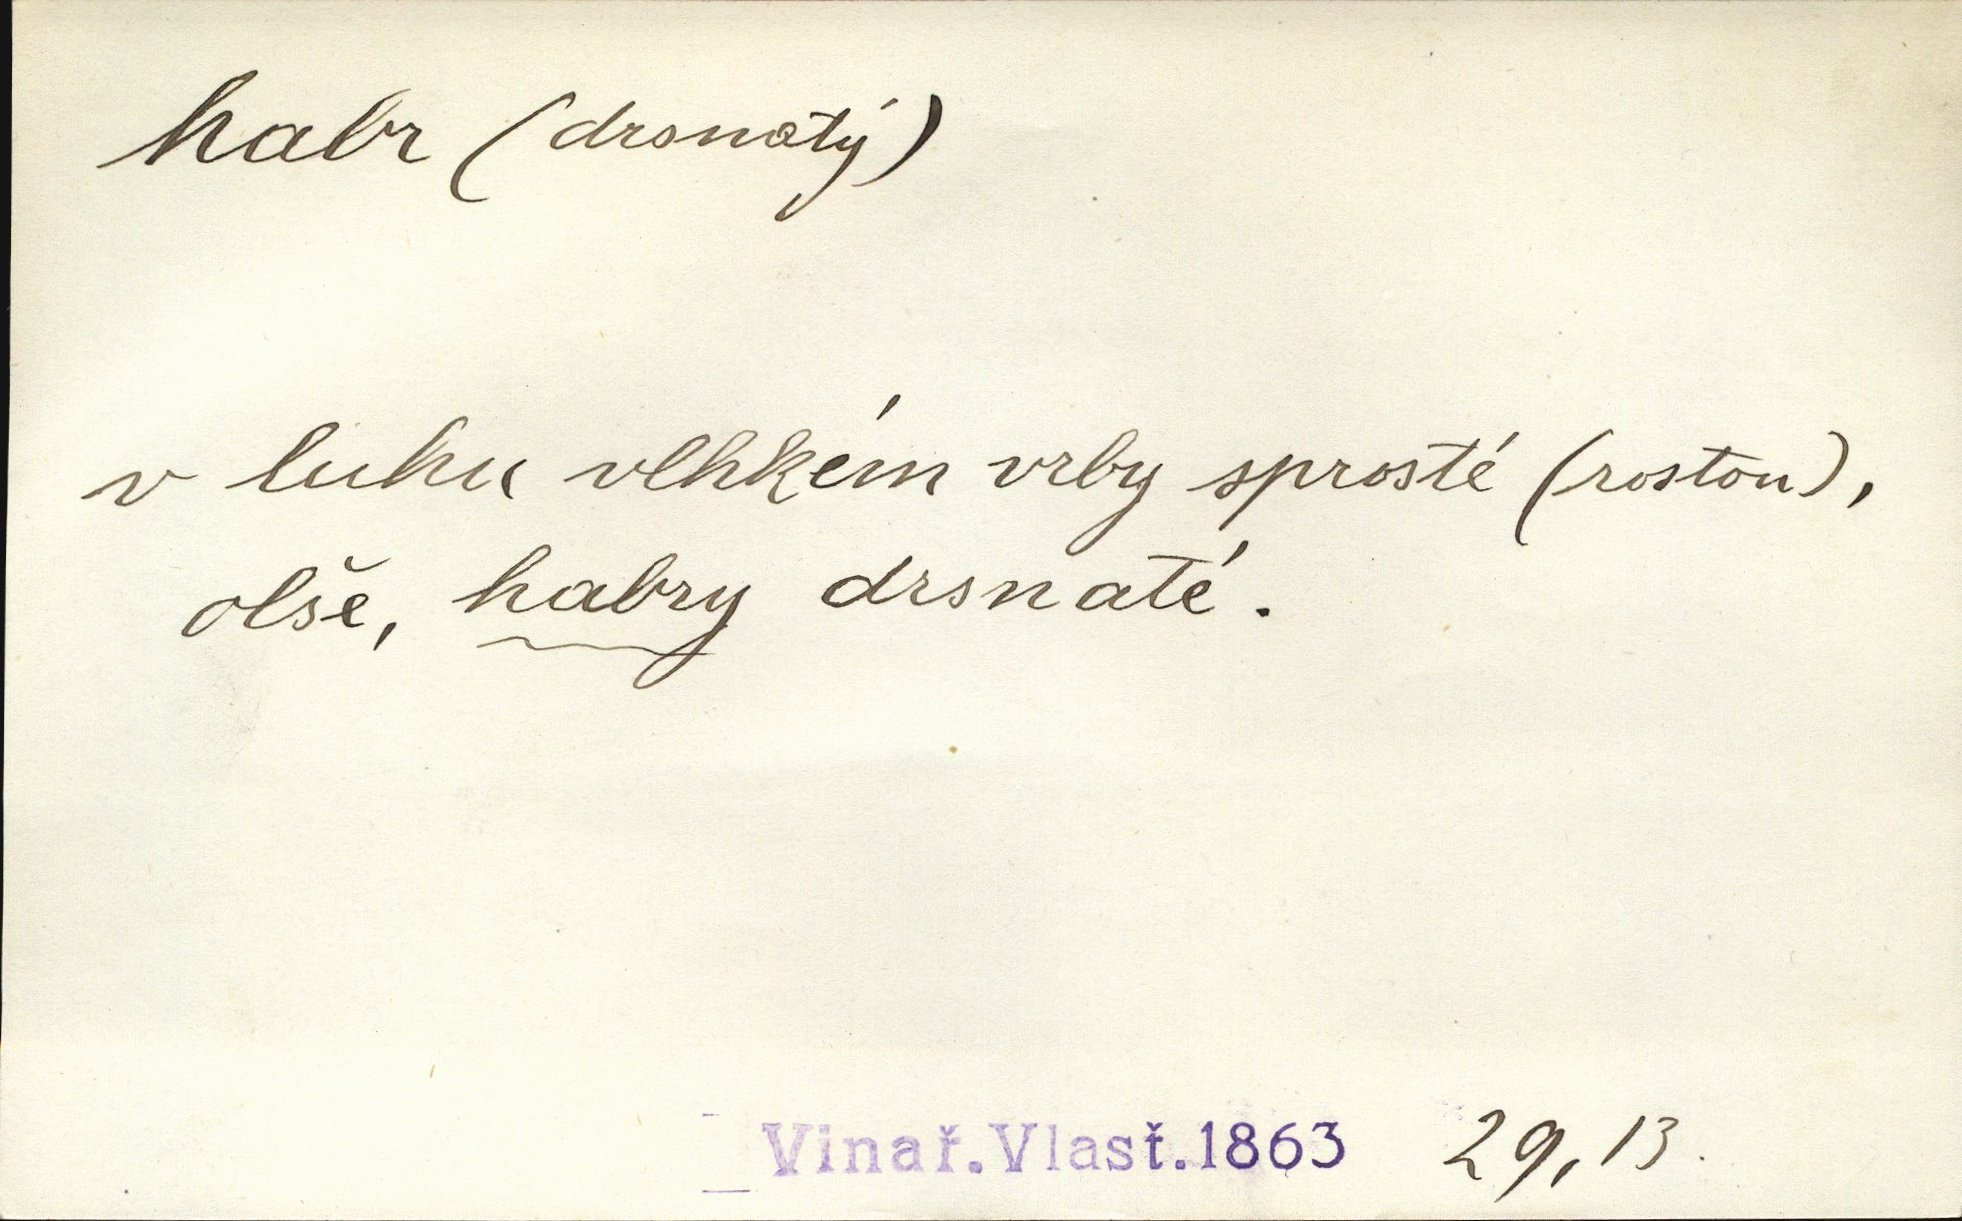 habr (drsnatý)
v luhu vlhkém vrby sprosté (rostou),
olše, habry drsnaté.
Vinař.Vlasť.1863 29,13.